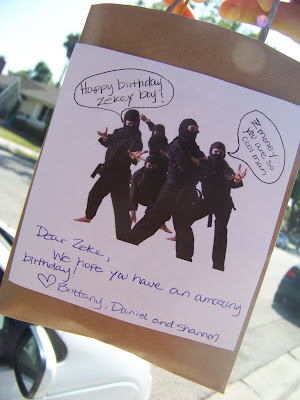 Happy birthday
Zekey boy!
Z money
you are so
cool man
Dear Zeke,
We hope you have an amazing
birthday!
♡ Brittany, Daniel and Shannon